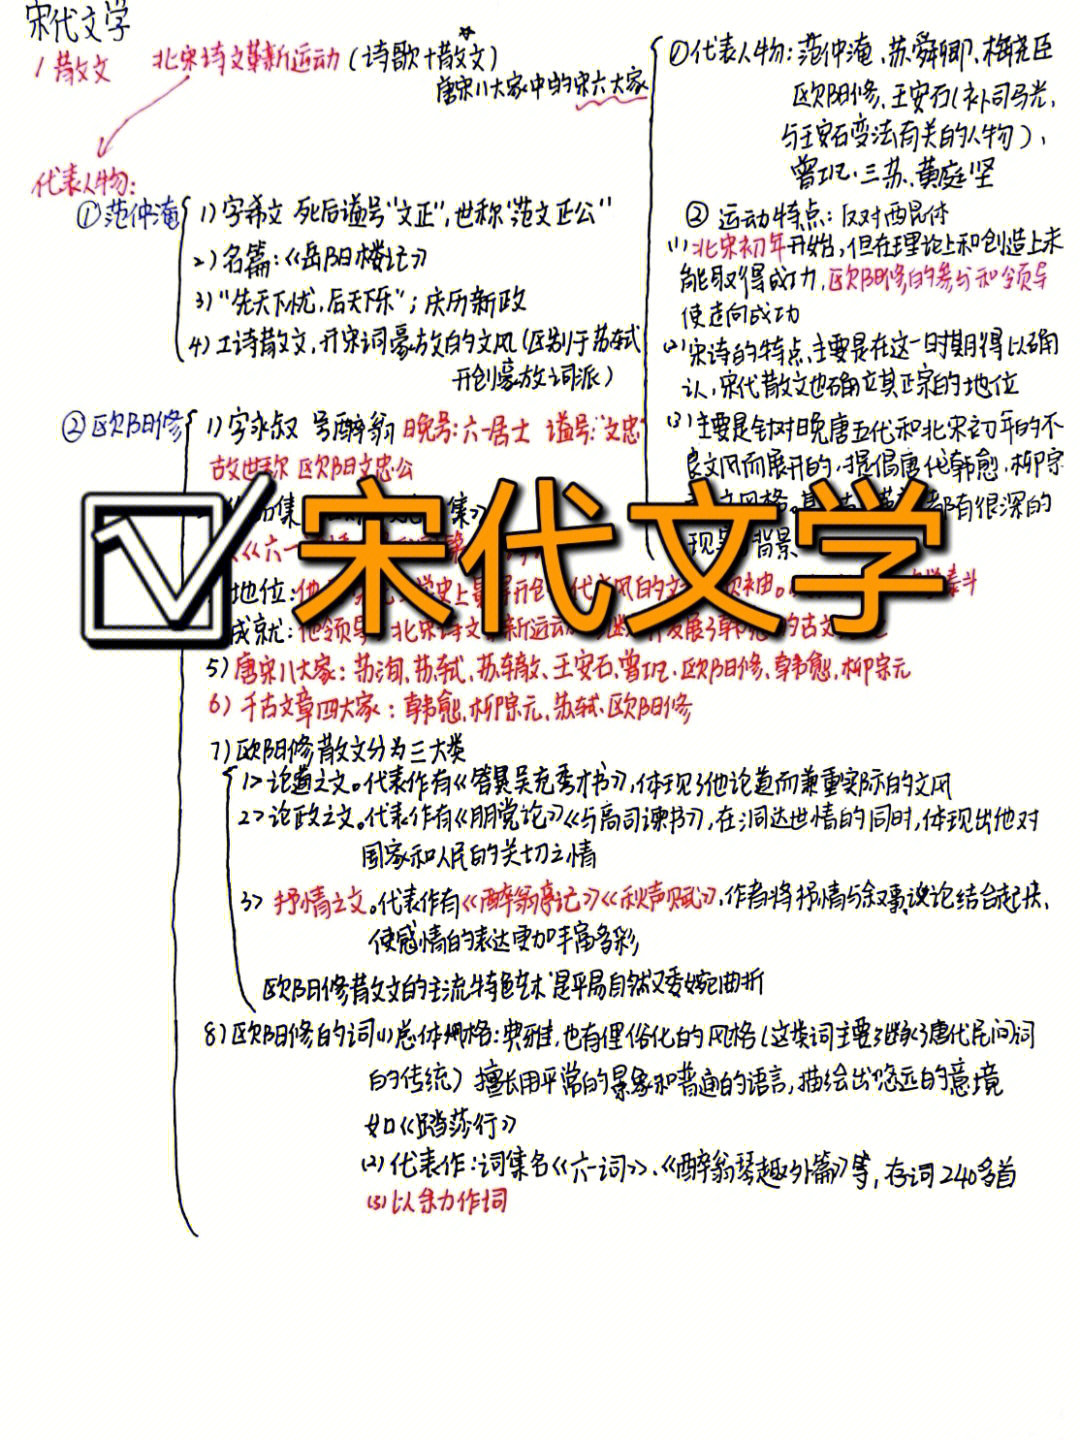 宋代文学
1 散文 北宋诗文革新运动(诗歌+散文)
唐宋八大家中的宋六大家
代表人物:
①范仲淹
1)字希文 死后谥号"文正",世称"范文正公"
2)名篇:《岳阳楼记》
3)"先天下忧,后天下乐";庆历新政
4)工诗散文,开宋词豪放的文风(区别于苏轼
开创豪放词派)
①代表人物:范仲淹、苏舜卿、梅尧臣
欧阳修、王安石(补司马光,
与王安石变法有关的人物)、
曾巩、三苏、黄庭坚
② 运动特点:反对西昆体
(1)北宋初年开始,但在理论上和创造上未
能取得成功,欧阳修的参与和领导
使走向成功
(2)宋诗的特点主要是在这一时期得以确
认,宋代散文也确立其正宗的地位
(3)主要是针对晚唐五代和北宋初年的不
良文风而展开的,提倡唐代韩愈、柳宗
都有很深的
现实背景
②欧阳修
1)字永叔 号醉翁 晚号:六一居士 谥号:"文忠"
故世称 欧阳文忠公
集》
《六一
宋代文学
地位:
成就:他领导 北宋诗文革新运动
5)唐宋八大家:苏洵、苏轼、苏辙、王安石、曾巩、欧阳修、韩愈、柳宗元
6)千古文章四大家:韩愈、柳宗元、苏轼、欧阳修
7)欧阳修散文分为三大类
1>论道之文。代表作有《答吴充秀才书》,体现了他论道而兼重实际的文风
2>论政之文。代表作有《朋党论》《与高司谏书》,在洞达世情的同时,体现出他对
国家和人民的关切之情
3>抒情之文。代表作有《醉翁亭记》《秋声赋》,作者将抒情与叙事议论结合起来,
使感情的表达更加丰富多彩
欧阳修散文的主流特色艺术是平易自然又委婉曲折
8)欧阳修的词(1)总体风格:典雅,也有俚俗化的风格(这类词主要继承了唐代民间词
的传统)擅长用平常的景象和普通的语言,描绘出悠远的意境
如《踏莎行》
(2)代表作:词集名《六一词》、《醉翁琴趣外篇》等,存词240多首
(3)以余力作词